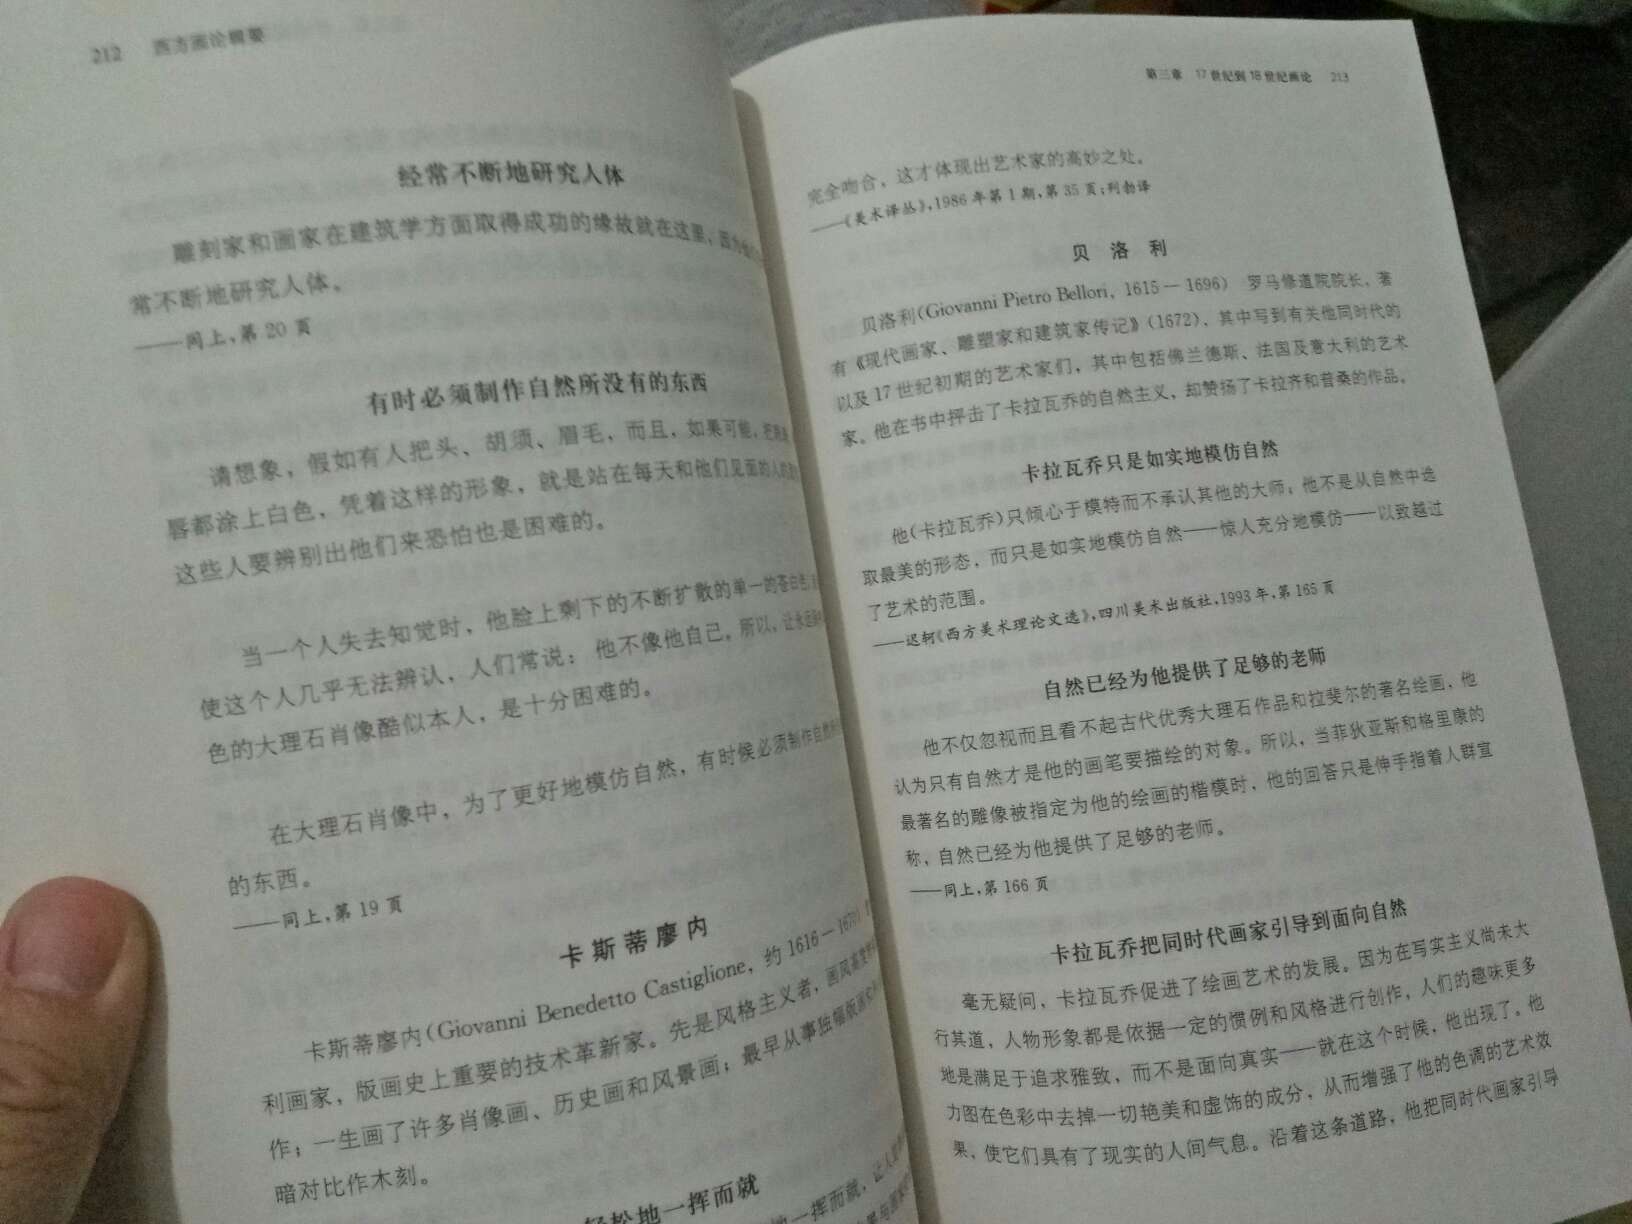 212 西方画论辑要
经常不断地研究人体
雕刻家和画家在建筑学方面取得成功的缘故就在这里，因为他们
常不断地研究人体。
——同上，第 20 页
有时必须制作自然所没有的东西
请想象，假如有人把头、胡须、眉毛，而且，如果可能，把
唇都涂上白色，凭着这样的形象，就是站在每天和他们见面的人的
这些人要辨别出他们来恐怕也是困难的。
当一个人失去知觉时，他脸上剩下的不断扩散的单一的苍白色
使这个人几乎无法辨认，人们常说：他不像他自己。所以，让
色的大理石肖像酷似本人，是十分困难的。
在大理石肖像中，为了更好地模仿自然，有时候必须制作自然
的东西。
——同上，第 19 页
卡斯蒂廖内
卡斯蒂廖内（Giovanni Benedetto Castiglione，约 1616—
利画家，版画史上重要的技术革新家。先是风格主义者，画风
作；一生画了许多肖像画、历史画和风景画；最早从事独幅版画
暗对比作木刻。
轻松地一挥而就
地一挥而就，让人
第三章 17 世纪到 18 世纪画论 213
完全吻合，这才体现出艺术家的高妙之处。
——《美术译丛》，1986 年第 1 期，第 35 页；列勃译
贝洛利
贝洛利（Giovanni Pietro Bellori，1615—1696） 罗马修道院院长，著
有《现代画家、雕塑家和建筑家传记》（1672），其中写到有关他同时代的
以及 17 世纪初期的艺术家们，其中包括佛兰德斯、法国及意大利的艺术
家。他在书中抨击了卡拉瓦乔的自然主义，却赞扬了卡拉齐和普桑的作品。
卡拉瓦乔只是如实地模仿自然
他（卡拉瓦乔）只倾心于模特而不承认其他的大师；他不是从自然中选
取最美的形态，而只是如实地模仿自然——惊人充分地模仿——以致越过
了艺术的范围。
——迟轲《西方美术理论文选》，四川美术出版社，1993 年，第 165 页
自然已经为他提供了足够的老师
他不仅忽视而且看不起古代优秀大理石作品和拉斐尔的著名绘画，他
认为只有自然才是他的画笔要描绘的对象。所以，当菲狄亚斯和格里康的
最著名的雕像被指定为他的绘画的楷模时，他的回答只是伸手指着人群宣
称，自然已经为他提供了足够的老师。
——同上，第 166 页
卡拉瓦乔把同时代画家引导到面向自然
毫无疑问，卡拉瓦乔促进了绘画艺术的发展。因为在写实主义尚未大
行其道，人物形象都是依据一定的惯例和风格进行创作，人们的趣味更多
地是满足于追求雅致，而不是面向真实——就在这个时候，他出现了。他
力图在色彩中去掉一切艳美和虚饰的成分，从而增强了他的色调的艺术效
果，使它们具有了现实的人间气息。沿着这条道路，他把同时代画家引导